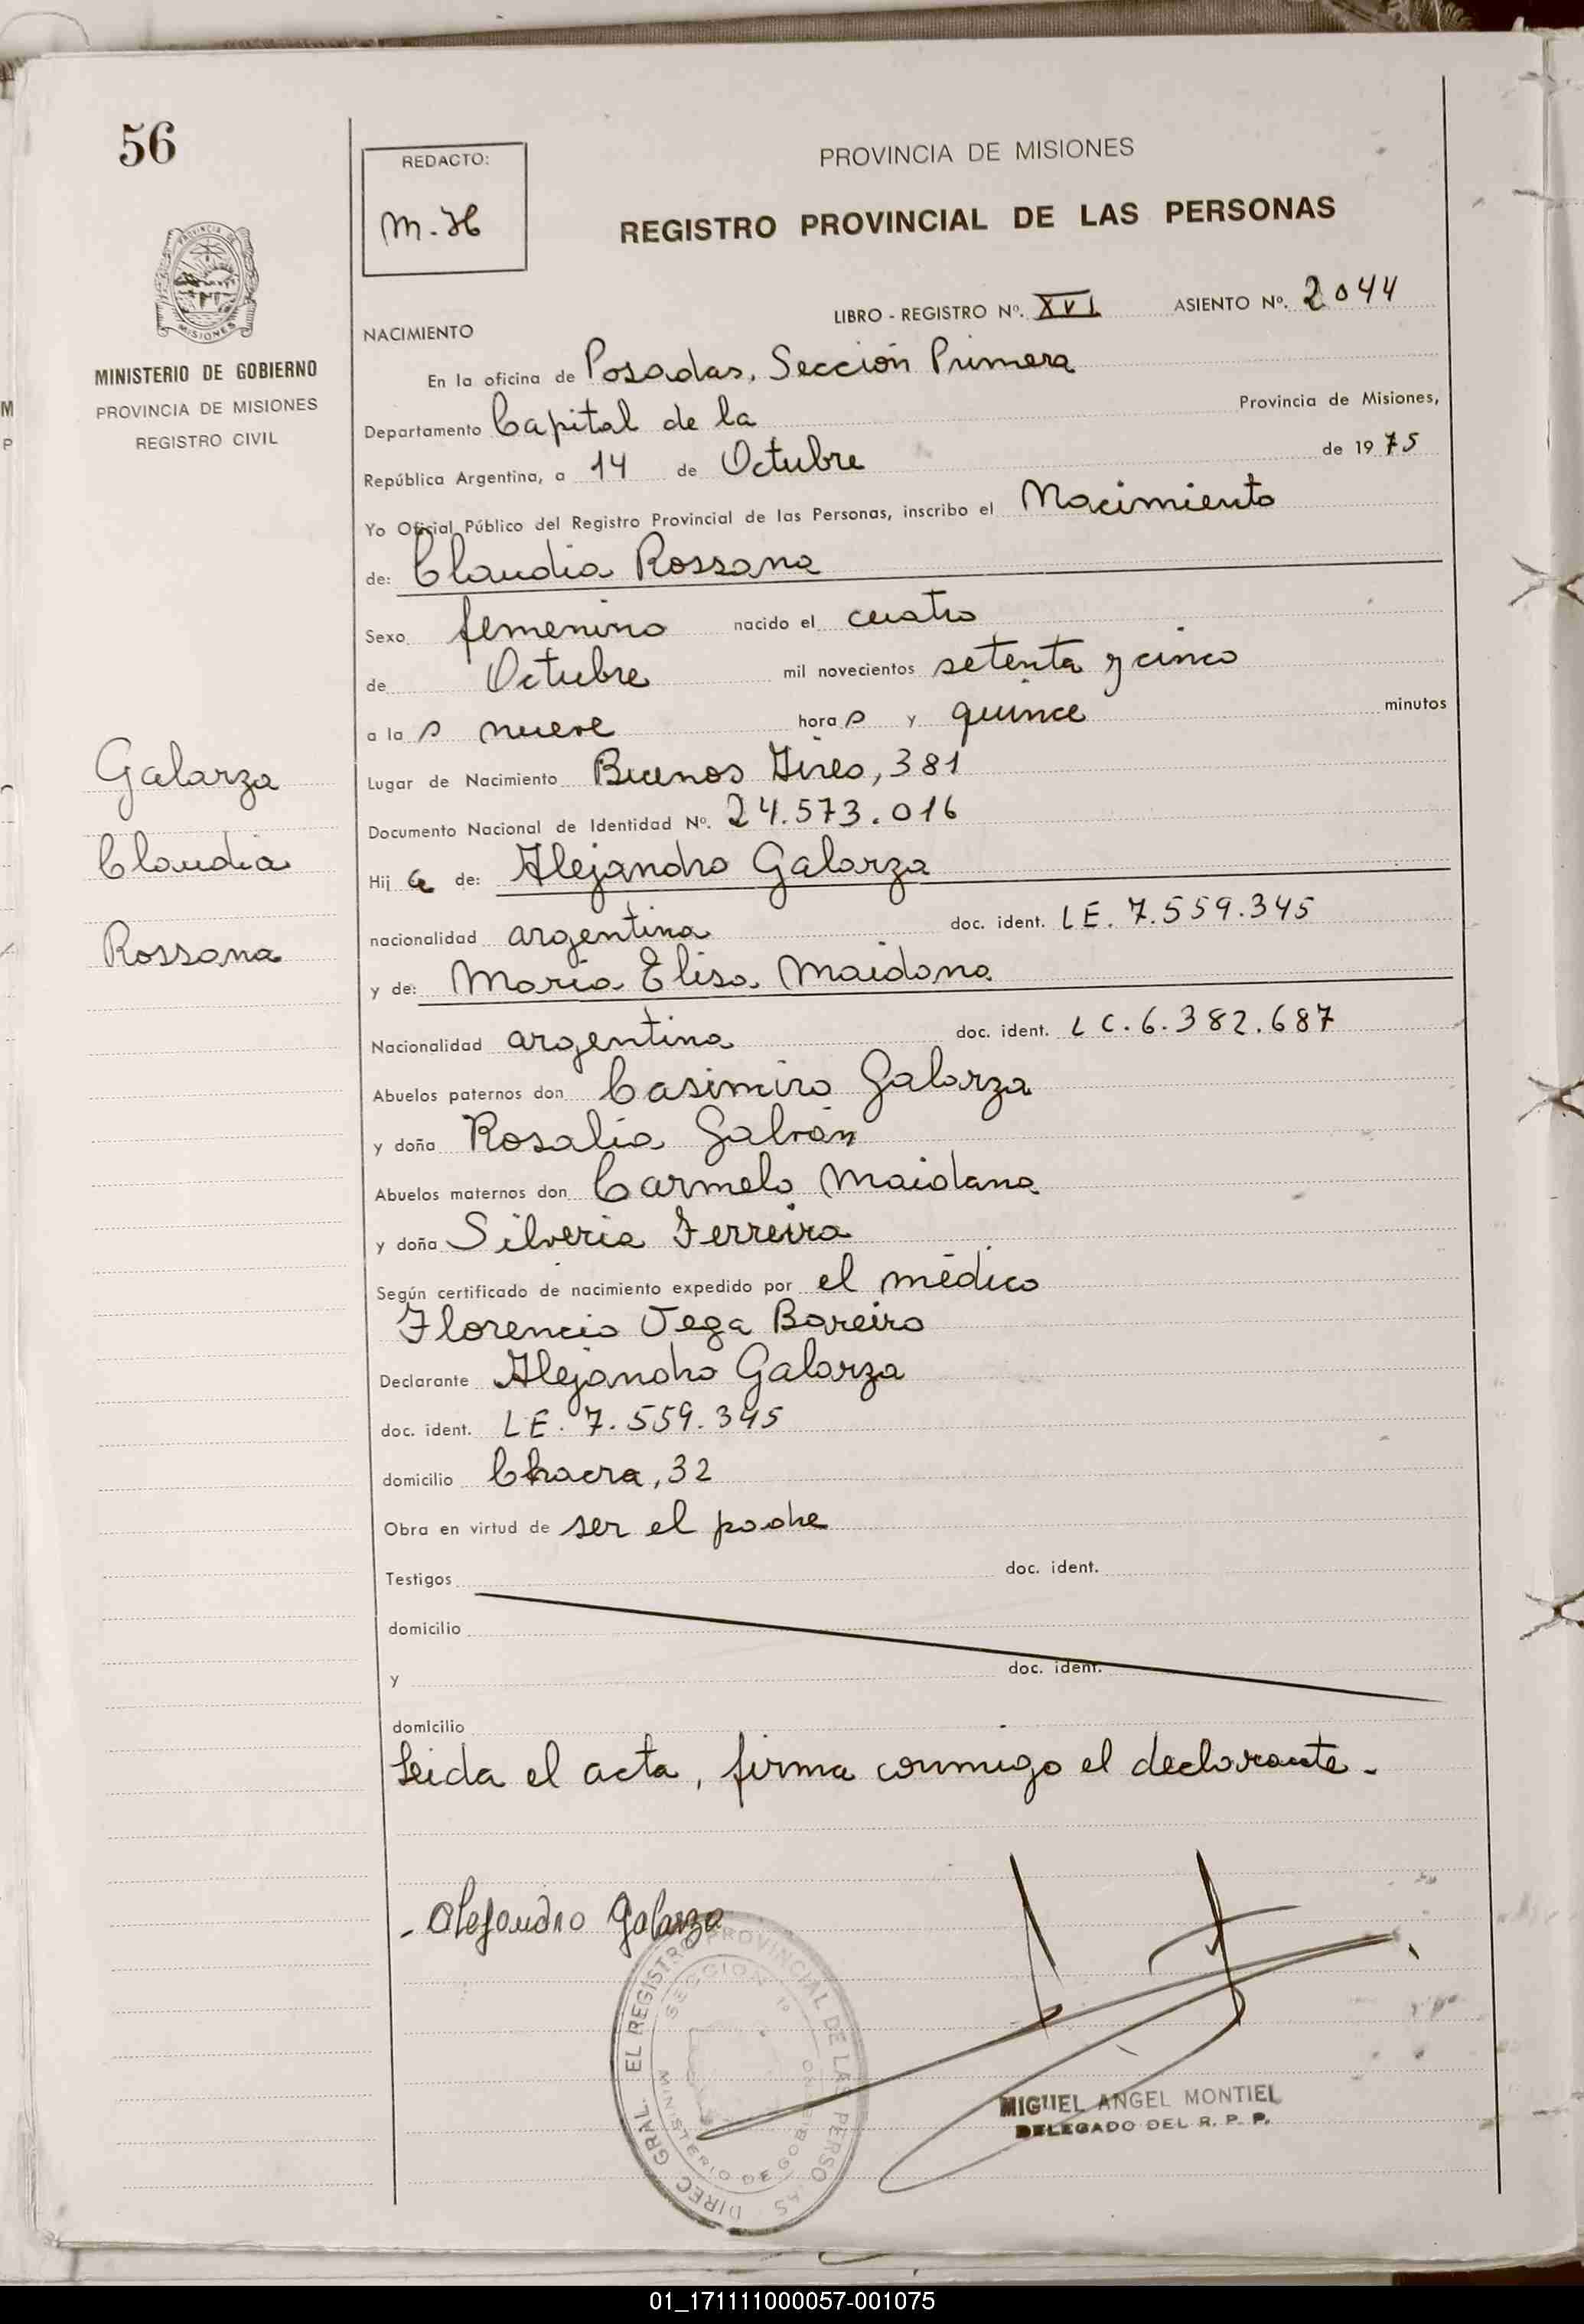 56
REDACTO:
M.H
PROVINCIA DE MISIONES
REGISTRO PROVINCIAL DE LAS PERSONAS
LIBRO - REGISTRO Nº. XVI ASIENTO Nº. 2044
PROVINCIA DE
MISIONES
MINISTERIO DE GOBIERNO
PROVINCIA DE MISIONES
REGISTRO CIVIL
NACIMIENTO
En la oficina de Posadas, Sección Primera
Departamento Capital de la Provincia de Misiones,
República Argentina, a 14 de Octubre de 1975
Yo Oficial Público del Registro Provincial de las Personas, inscribo el Nacimiento
de: Claudia Rossana
Sexo femenino nacido el cuatro
de Octubre mil novecientos setenta y cinco
a las nueve horas y quince minutos
Lugar de Nacimiento Buenos Aires, 381
Documento Nacional de Identidad Nº. 24.573.016
Hija de: Alejandro Galarza
nacionalidad argentina doc. ident. LE. 7.559.345
y de: Maria Elisa Maidana
Nacionalidad argentina doc. ident. LC. 6.382.687
Abuelos paternos don Casimiro Galarza
y doña Rosalia Galván
Abuelos maternos don Carmelo Maidana
y doña Silveria Ferreira
Según certificado de nacimiento expedido por el médico
Florencio Vega Bareiro
Declarante Alejandro Galarza
doc. ident. LE. 7.559.345
domicilio Chacra, 32
Obra en virtud de ser el padre
Testigos doc. ident.
domicilio
y doc. ident.
domicilio
Leida el acta, firma conmigo el declarante.
Galarza
Claudia
Rossana
- Alejandro Galarza
DIREC. GRAL. EL REGISTRO PROVINCIAL DE LAS PERSO AS
SECCION 1ª
MINISTERIO DE GOBIERNO
MIGUEL ANGEL MONTIEL
DELEGADO DEL R. P. P.
01_171111000057-001075